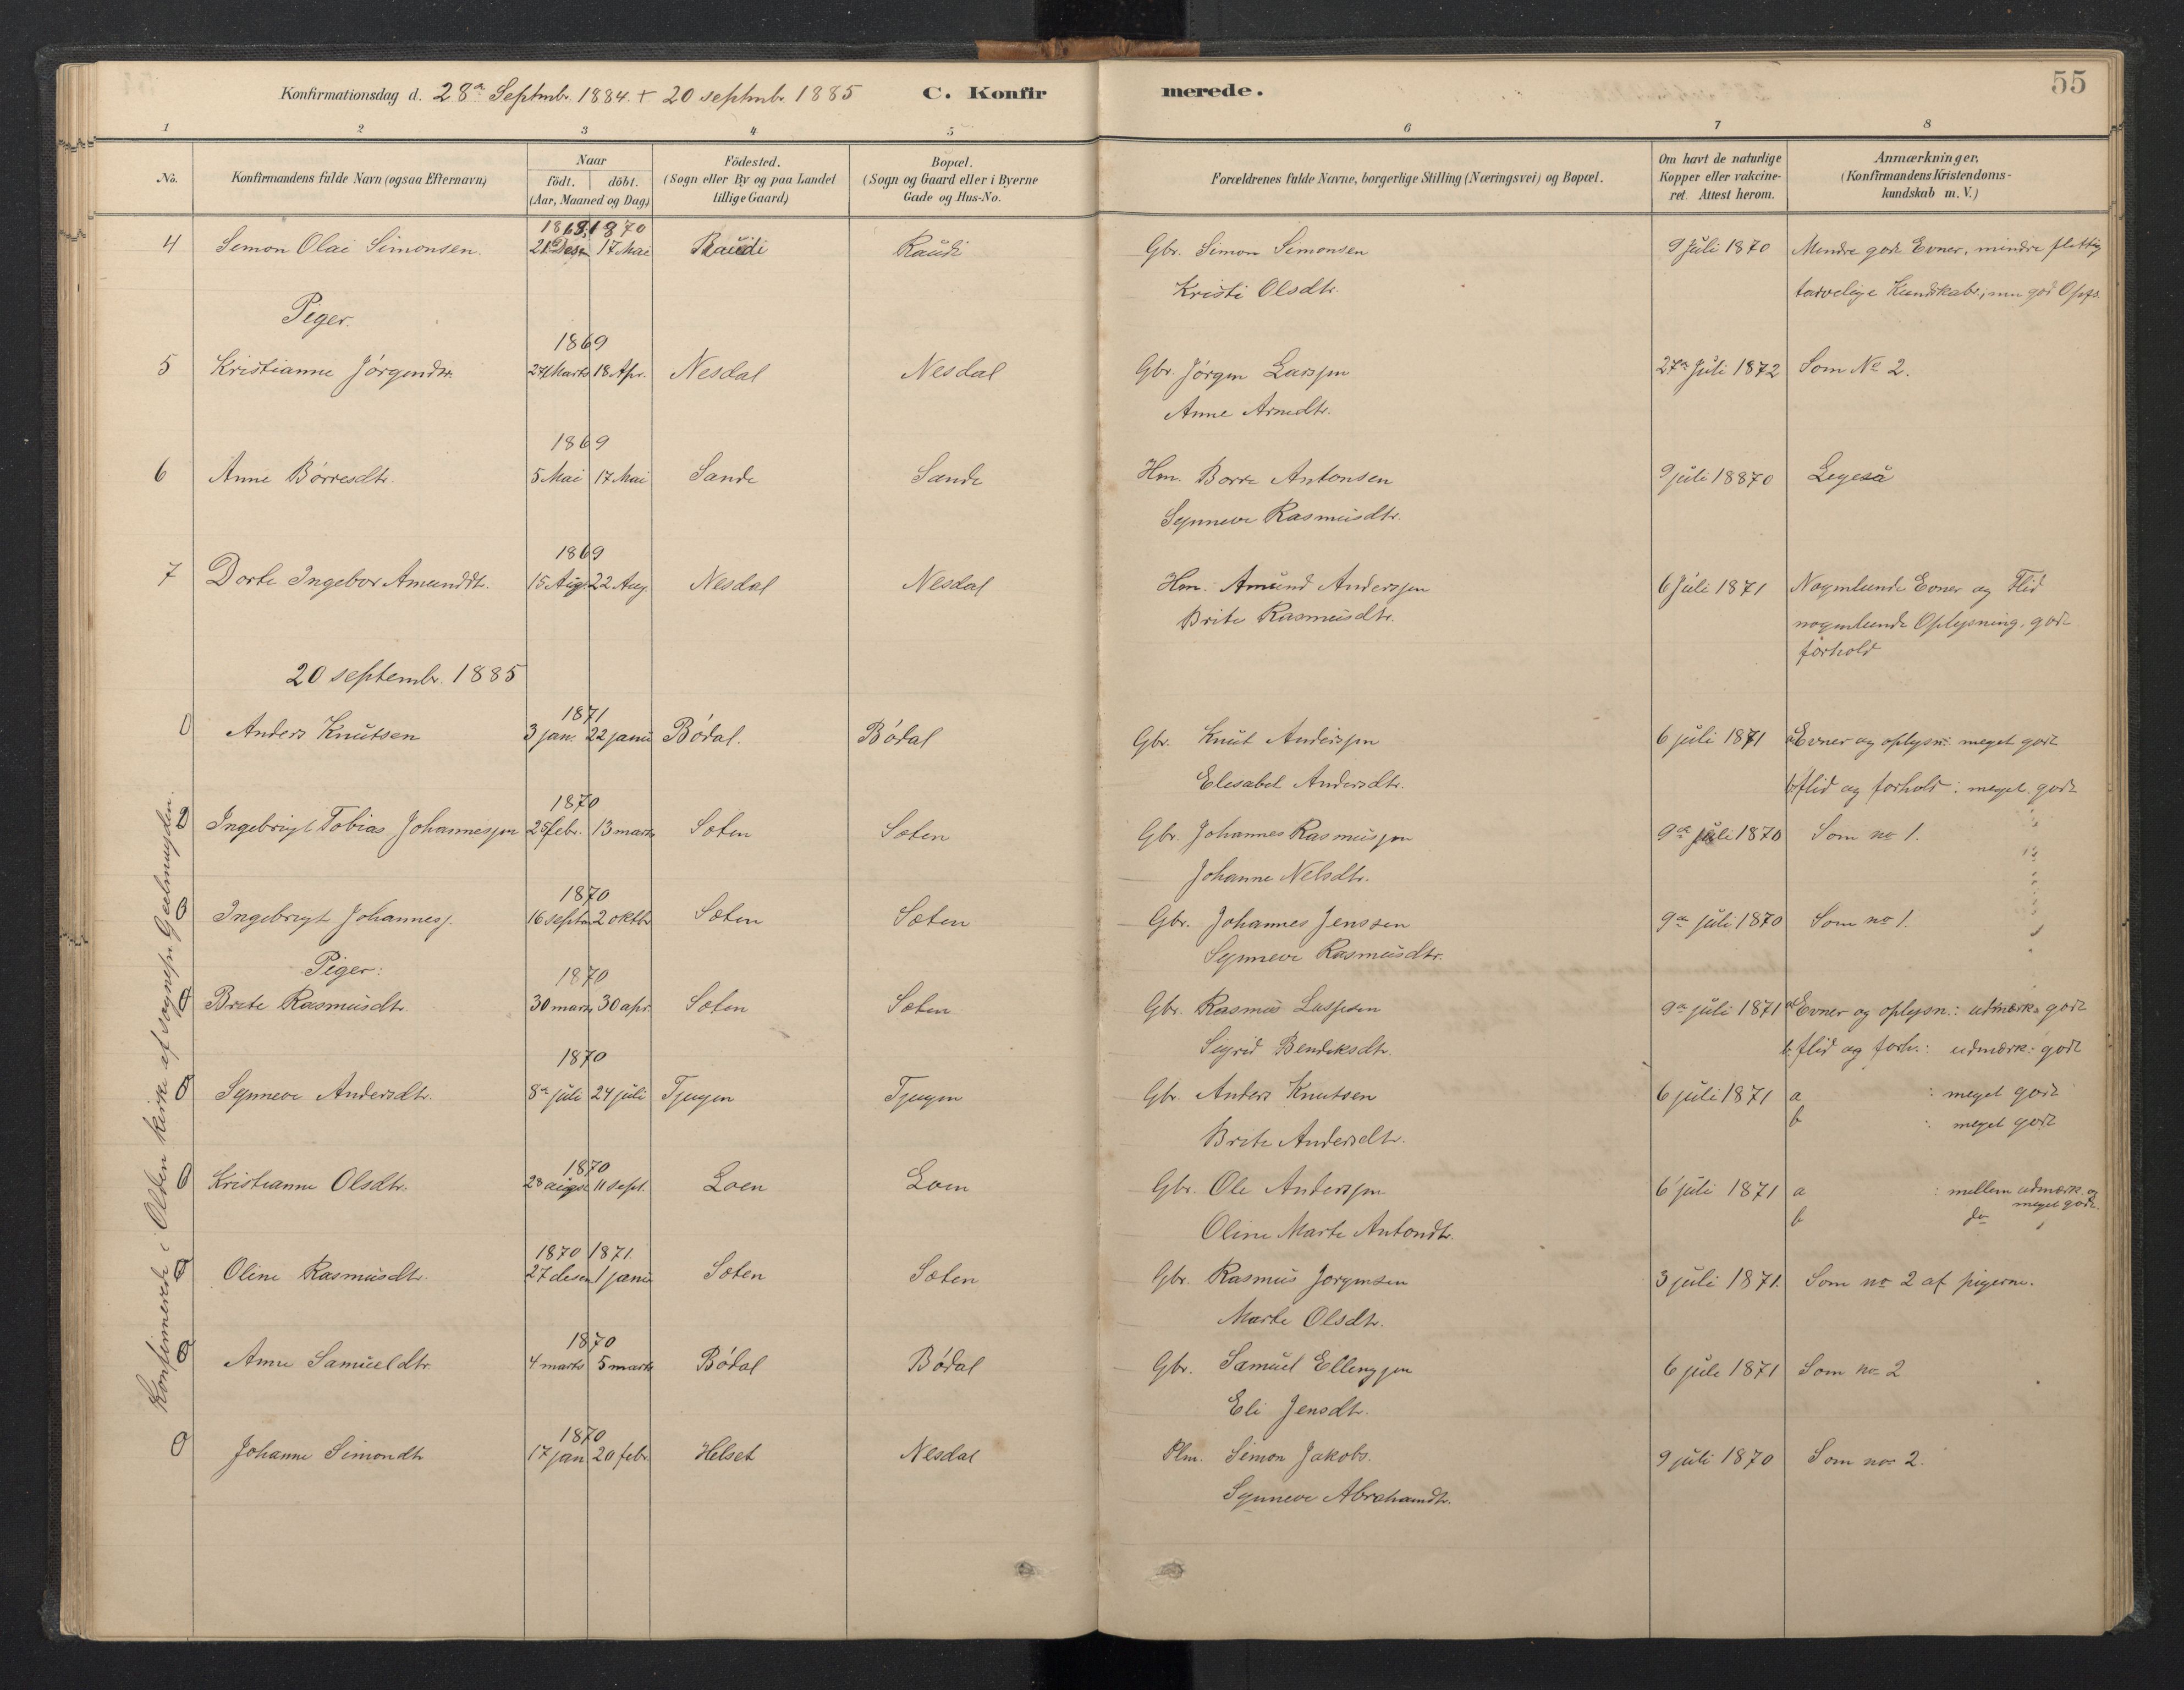 Konfirmationsdag d. 28de Septmbr. 1884. + 20 septmbr. 1885 C. Konfir merede. 55
1 2 3 4 5 6 7 8
No. Konfirmandens fulde Navn (ogsaa Efternavn) Naar födt. döbt. (Aar, Maaned og Dag) Födested. (Sogn eller By og paa Landet tillige Gaard) Bopæl. (Sogn og Gaard eller i Byerne Gade og Hus-No. Forældrenes fulde Navne, borgerlige Stilling (Næringsvei) og Bopæl. Om havt de naturlige Kopper eller vakcineret. Attest herom. Anmærkninger, (Konfirmandens Kristendomskundskab m. V.)
1870
4 Simon Olai Simonsen. 17 Mai Raudi Raudi Gbr. Simon Simonsen 9 Juli 1870 Mindre gode Evner, mindre flittig
Kristi Olsdtr. tarvelige Kundskabr, men god Opfs.
Piger.
1869
5 Kristianne Jörgendtr. 27 Marts 18 Apr. Nesdal Nesdal Gbr. Jörgen Larssen 27de Juli 1872 Som No 2.
Anne Arnedtr.
1869
6 Anne Börresdtr. 5 Mai 17 Mai Sande Sande Hm. Borre Antonsen 9 juli 18870 Legeså
Synneve Rasmusdtr.
1869
7 Dorte Ingebor Amunddtr. 15 Aug. 22 Aug. Nesdal Nesdal Hm. Amund Anderssen 6 Juli 1871 Nogenlunde Evner og Flid
Brite Rasmusdtr. nogenlunde Oplysning, god
forhold
20 septembr. 1885
1871
0 Anders Knutsen 3 jan. 22 janu Bödal. Bödal Gbr. Knut Anderssen 6 juli 1871 a Evner og oplysn: meget gode
Elesabet Andersdtr. b flid og forhold: meget godt
1870
0 Ingebrigt Tobias Johannessen 25 febr. 13 marts Sæten Sæten Gbr. Johannes Rasmussen 9de juli 1870 Som no 1.
Johanne Nelsdtr.
1870
0 Ingebrigt Johanness. 16 septm 2 oktbr Sæten Sæten Gbr. Johannes Jenssen 9de juli 1870 Som no 1.
Synneve Rasmusdtr.
Piger:
1870
0 Brite Rasmusdtr. 30 marts 30 apr. Sæten Sæten Gbr. Rasmus Lassesen 9de juli 1871 a Evner og oplysn.: udmærk. gode
Sigrid Bendiksdtr. b. flid og forh.: udmærk. godt
1870
0 Synneve Andersdtr. 8de juli 24 juli Tjugen Tjugen Gbr. Anders Knutsen 6 juli 1871 a : meget gode
Brite Andersdtr. b : meget godt
1870
0 Kristianne Olsdtr. 28 augst 11 sept. Loen Loen Gbr. Ole Anderssen 6 juli 1871 a : mellem udmærk. og meget gode.
Oline Marte Antondtr. b do
1870 1871.
0 Oline Rasmusdtr. 27 desem 1 janu Sæten Sæten Gbr. Rasmus Jorgensen 3 juli 1871. Som no 2 af pigerne.
Marte Olsdtr.
1870
0 Anne Samueldtr. 4 marts 5 marts Bödal Bödal Gbr. Samuel Ellingsen 6 juli 1871 Som no 2
Eli Jensdtr.
1870
0 Johanne Simondtr 17 jan. 20 febr. Helset Nesdal Plm. Simon Jakobs. 9 juli 1870 Som no 2.
Synneve Abrahamdtr.
Konfirmerede i Olden kirke af sognepr. Geelmuyden.